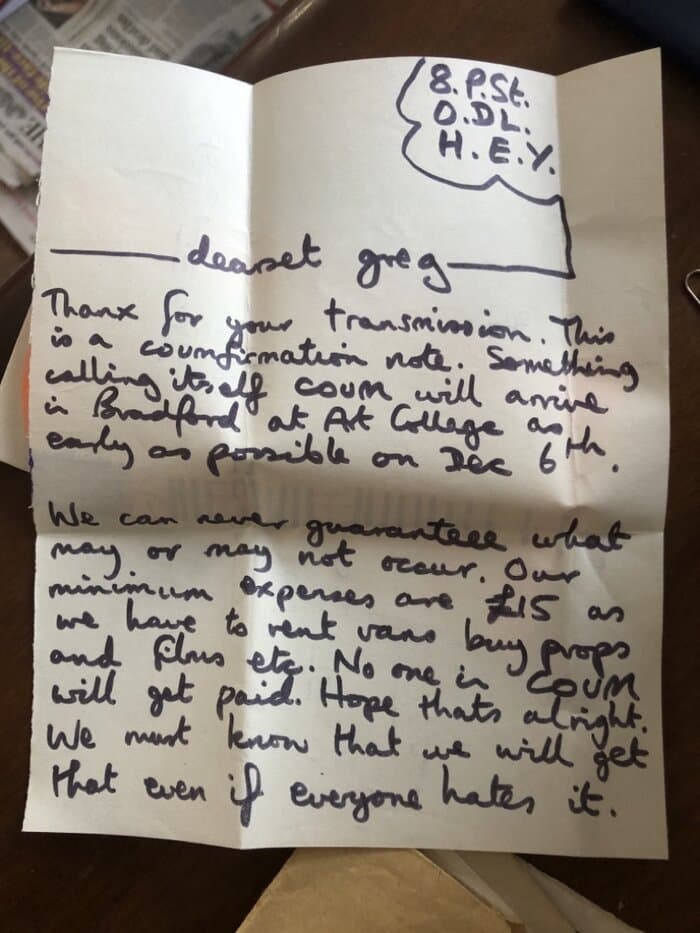 8. P.St.
O.DL.
H.E.Y.
dearset greg
Thanx for your transmission. This
is a coumfirmation note. Something
calling itself COUM will arrive
in Bradford at Art College as
early as possible on Dec 6th.
We can never guaranteee what
may or may not occur. Our
minimum expenses are £15 as
we have to rent vans buy props
and films etc. No one in COUM
will get paid. Hope thats alright.
We must know that we will get
that even if everyone hates it.